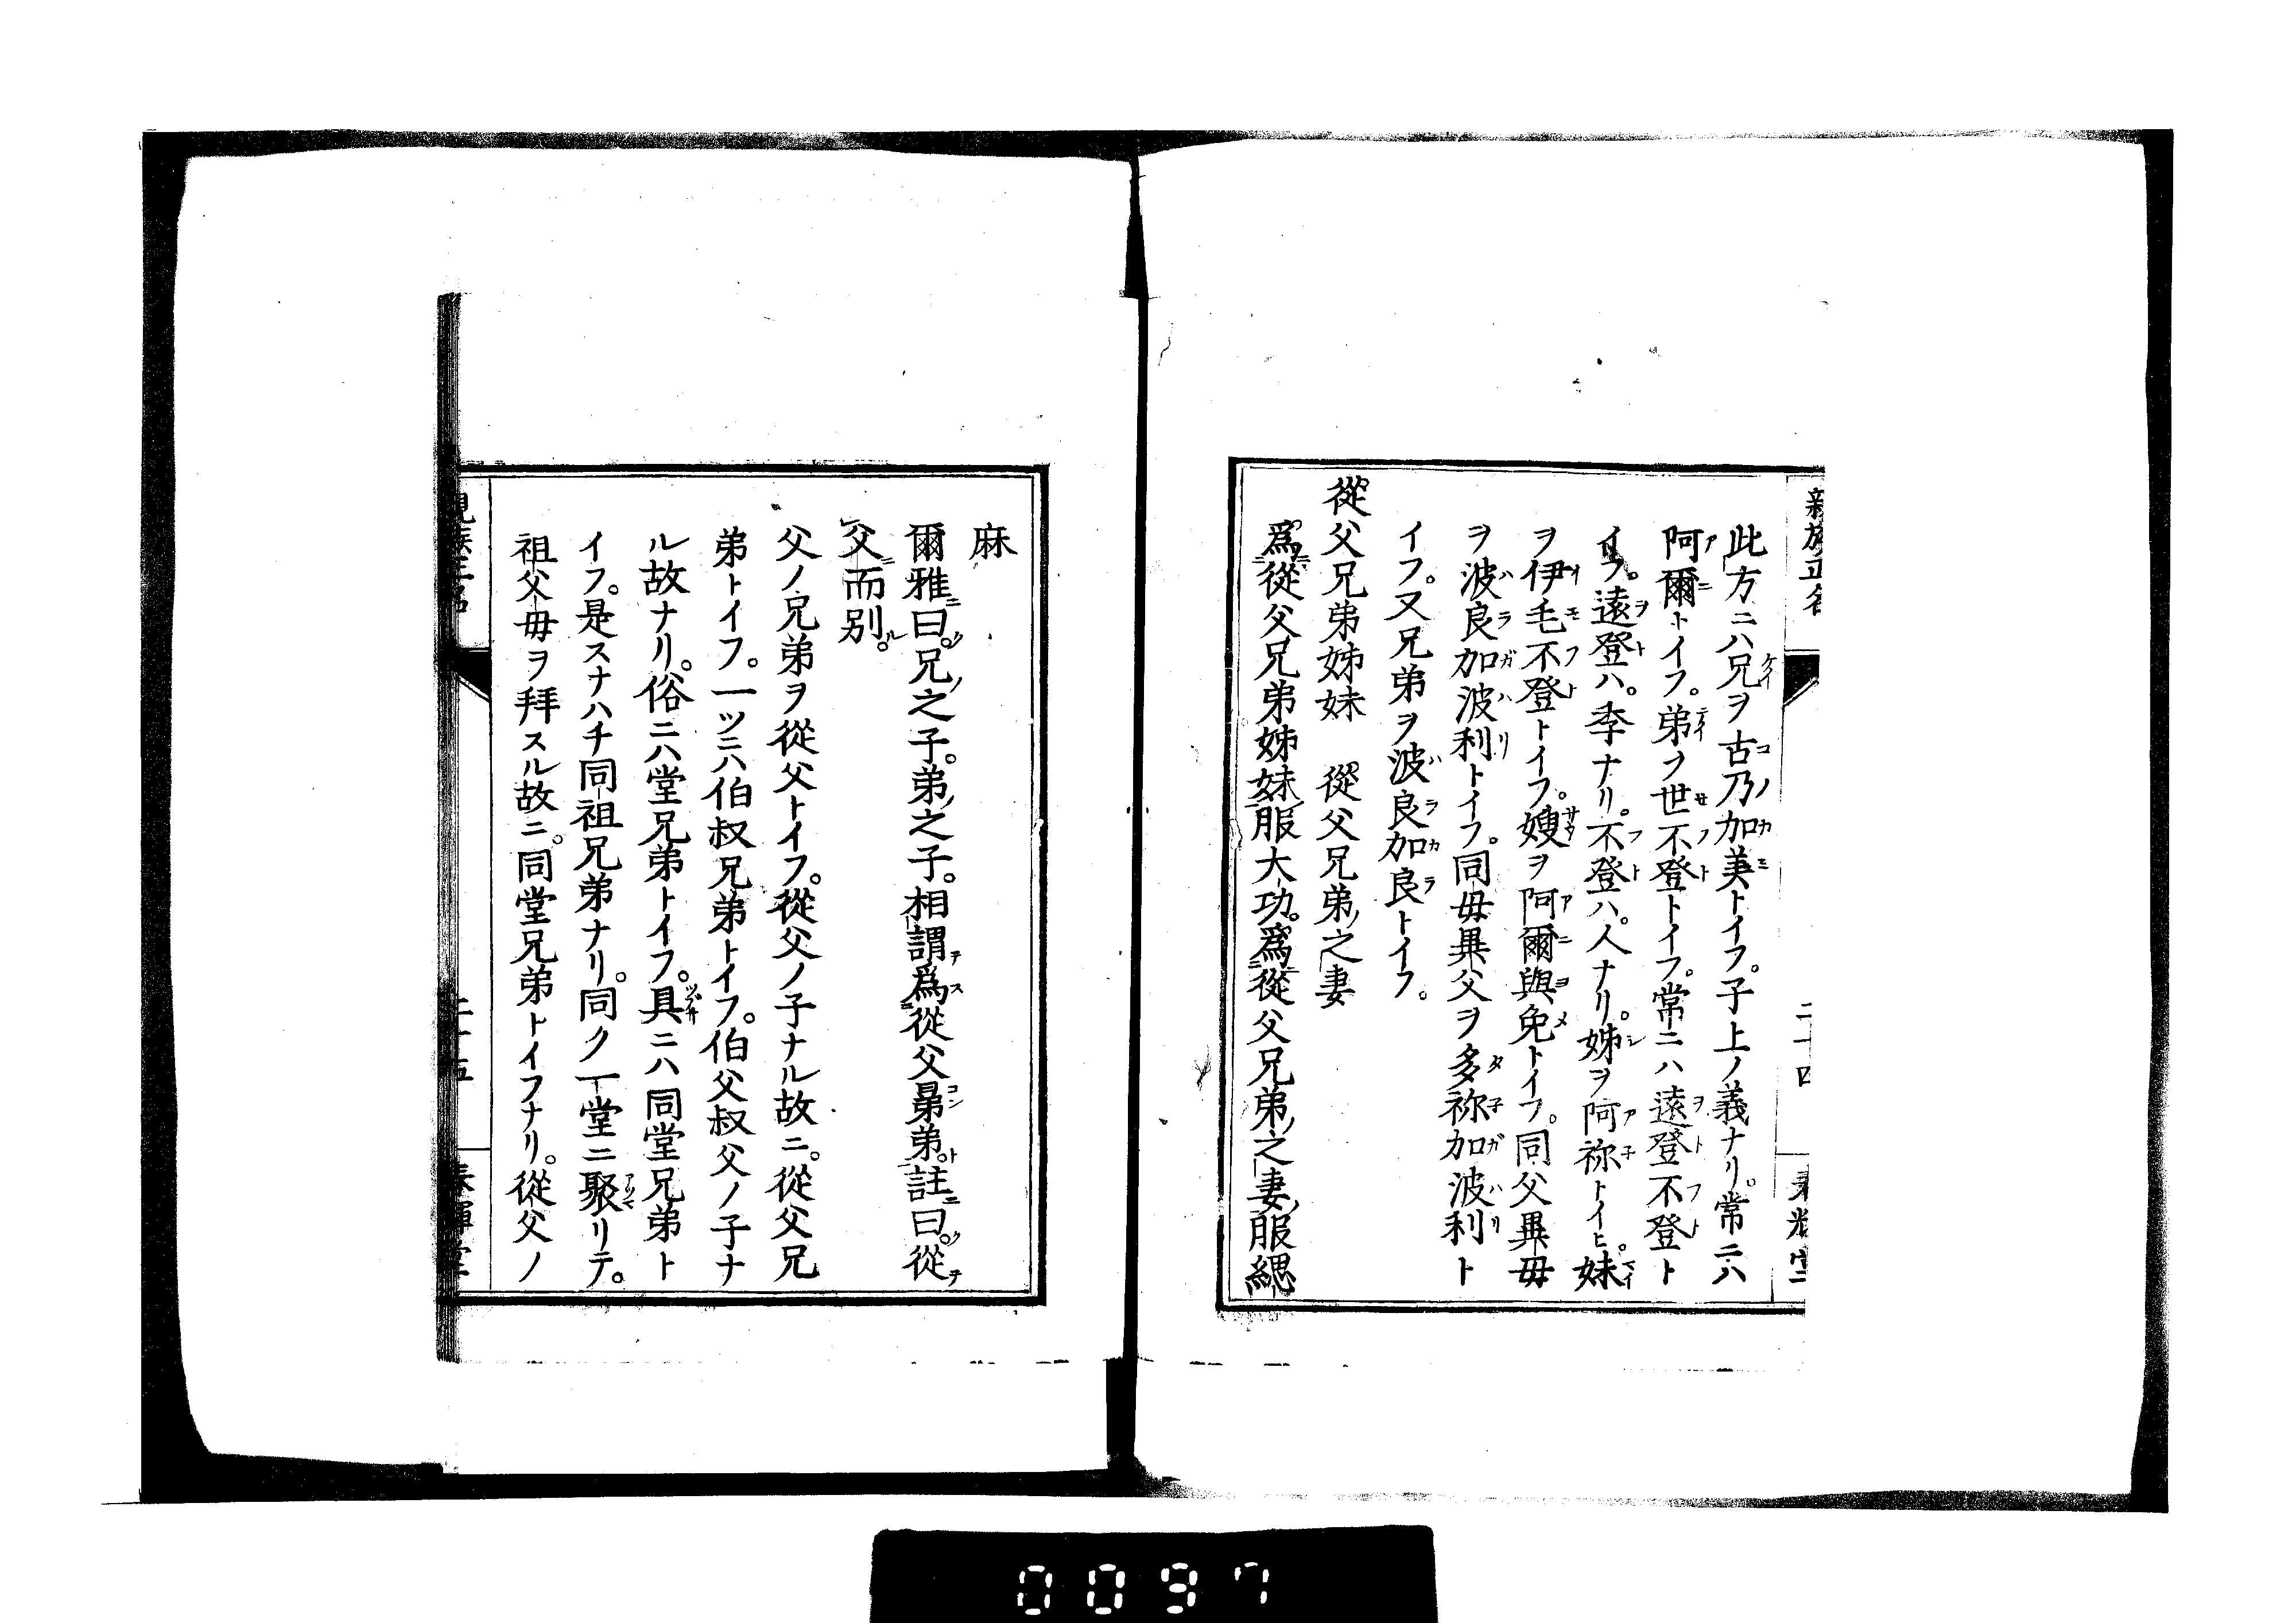 此方ニハ兄ヲ古乃加美トイフ。子上ノ義ナリ。常ニハ
阿爾トイフ。弟ヲ世不登トイフ。常ニハ遠登不登ト
イフ。遠登ハ。季ナリ。不登ハ。人ナリ。姊ヲ阿祢トイヒ。妹
ヲ伊毛不登トイフ。嫂ヲ阿爾與免トイフ。同父異母
ヲ波良加波利トイフ。同母異父ヲ多祢加波利ト
イフ。又兄弟ヲ波良加良トイフ。
從父兄弟姊妹 從父兄弟ノ之妻
爲從父兄弟姊妹服大功。爲從父兄弟ノ之妻ノ服緦
麻
爾雅ニ曰。兄ノ之子。弟ノ之子。相謂テ爲ス從父晜弟ト。註ニ曰。從テ
父而別ル。
父ノ兄弟ヲ從父トイフ。從父ノ子ナル故ニ。從父兄
弟トイフ。一ツニハ伯叔兄弟トイフ。伯父叔父ノ子ナ
ル故ナリ。俗ニハ堂兄弟トイフ。具ニハ同堂兄弟ト
イフ。是スナハチ同祖兄弟ナリ。同ク一堂ニ聚リテ。
祖父母ヲ拜スル故ニ。同堂兄弟トイフナリ。從父ノ
0097